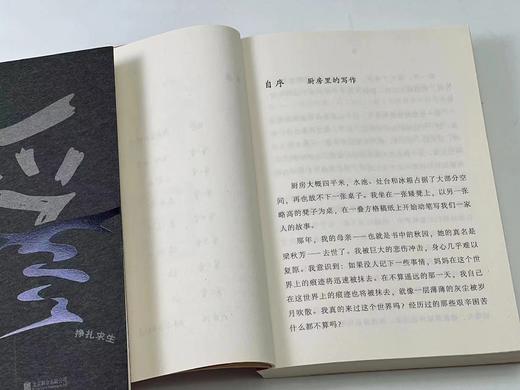 挣扎求生
自序 厨房里的写作
厨房大概四平米，水池、灶台和冰箱占据了大部分空
间，再也放不下一张桌子。我坐在一张矮凳上，以另一张
略高的凳子为桌，在一叠方格稿纸上开始动笔写我们一家
人的故事。
那年，我的母亲——也就是书中的秋园，她的真名是
梁秋芳——去世了。我被巨大的悲伤冲击，身心几乎难以
复原。我意识到：如果没人记下一些事情，妈妈在这个世
界上的痕迹将迅速被抹去。在不算遥远的那一天，我自己
在这世界上的痕迹也将被抹去，就像一层薄薄的灰尘被岁
月吹散。我真的来过这个世界吗？经历过的那些艰辛困苦
什么都不算吗？